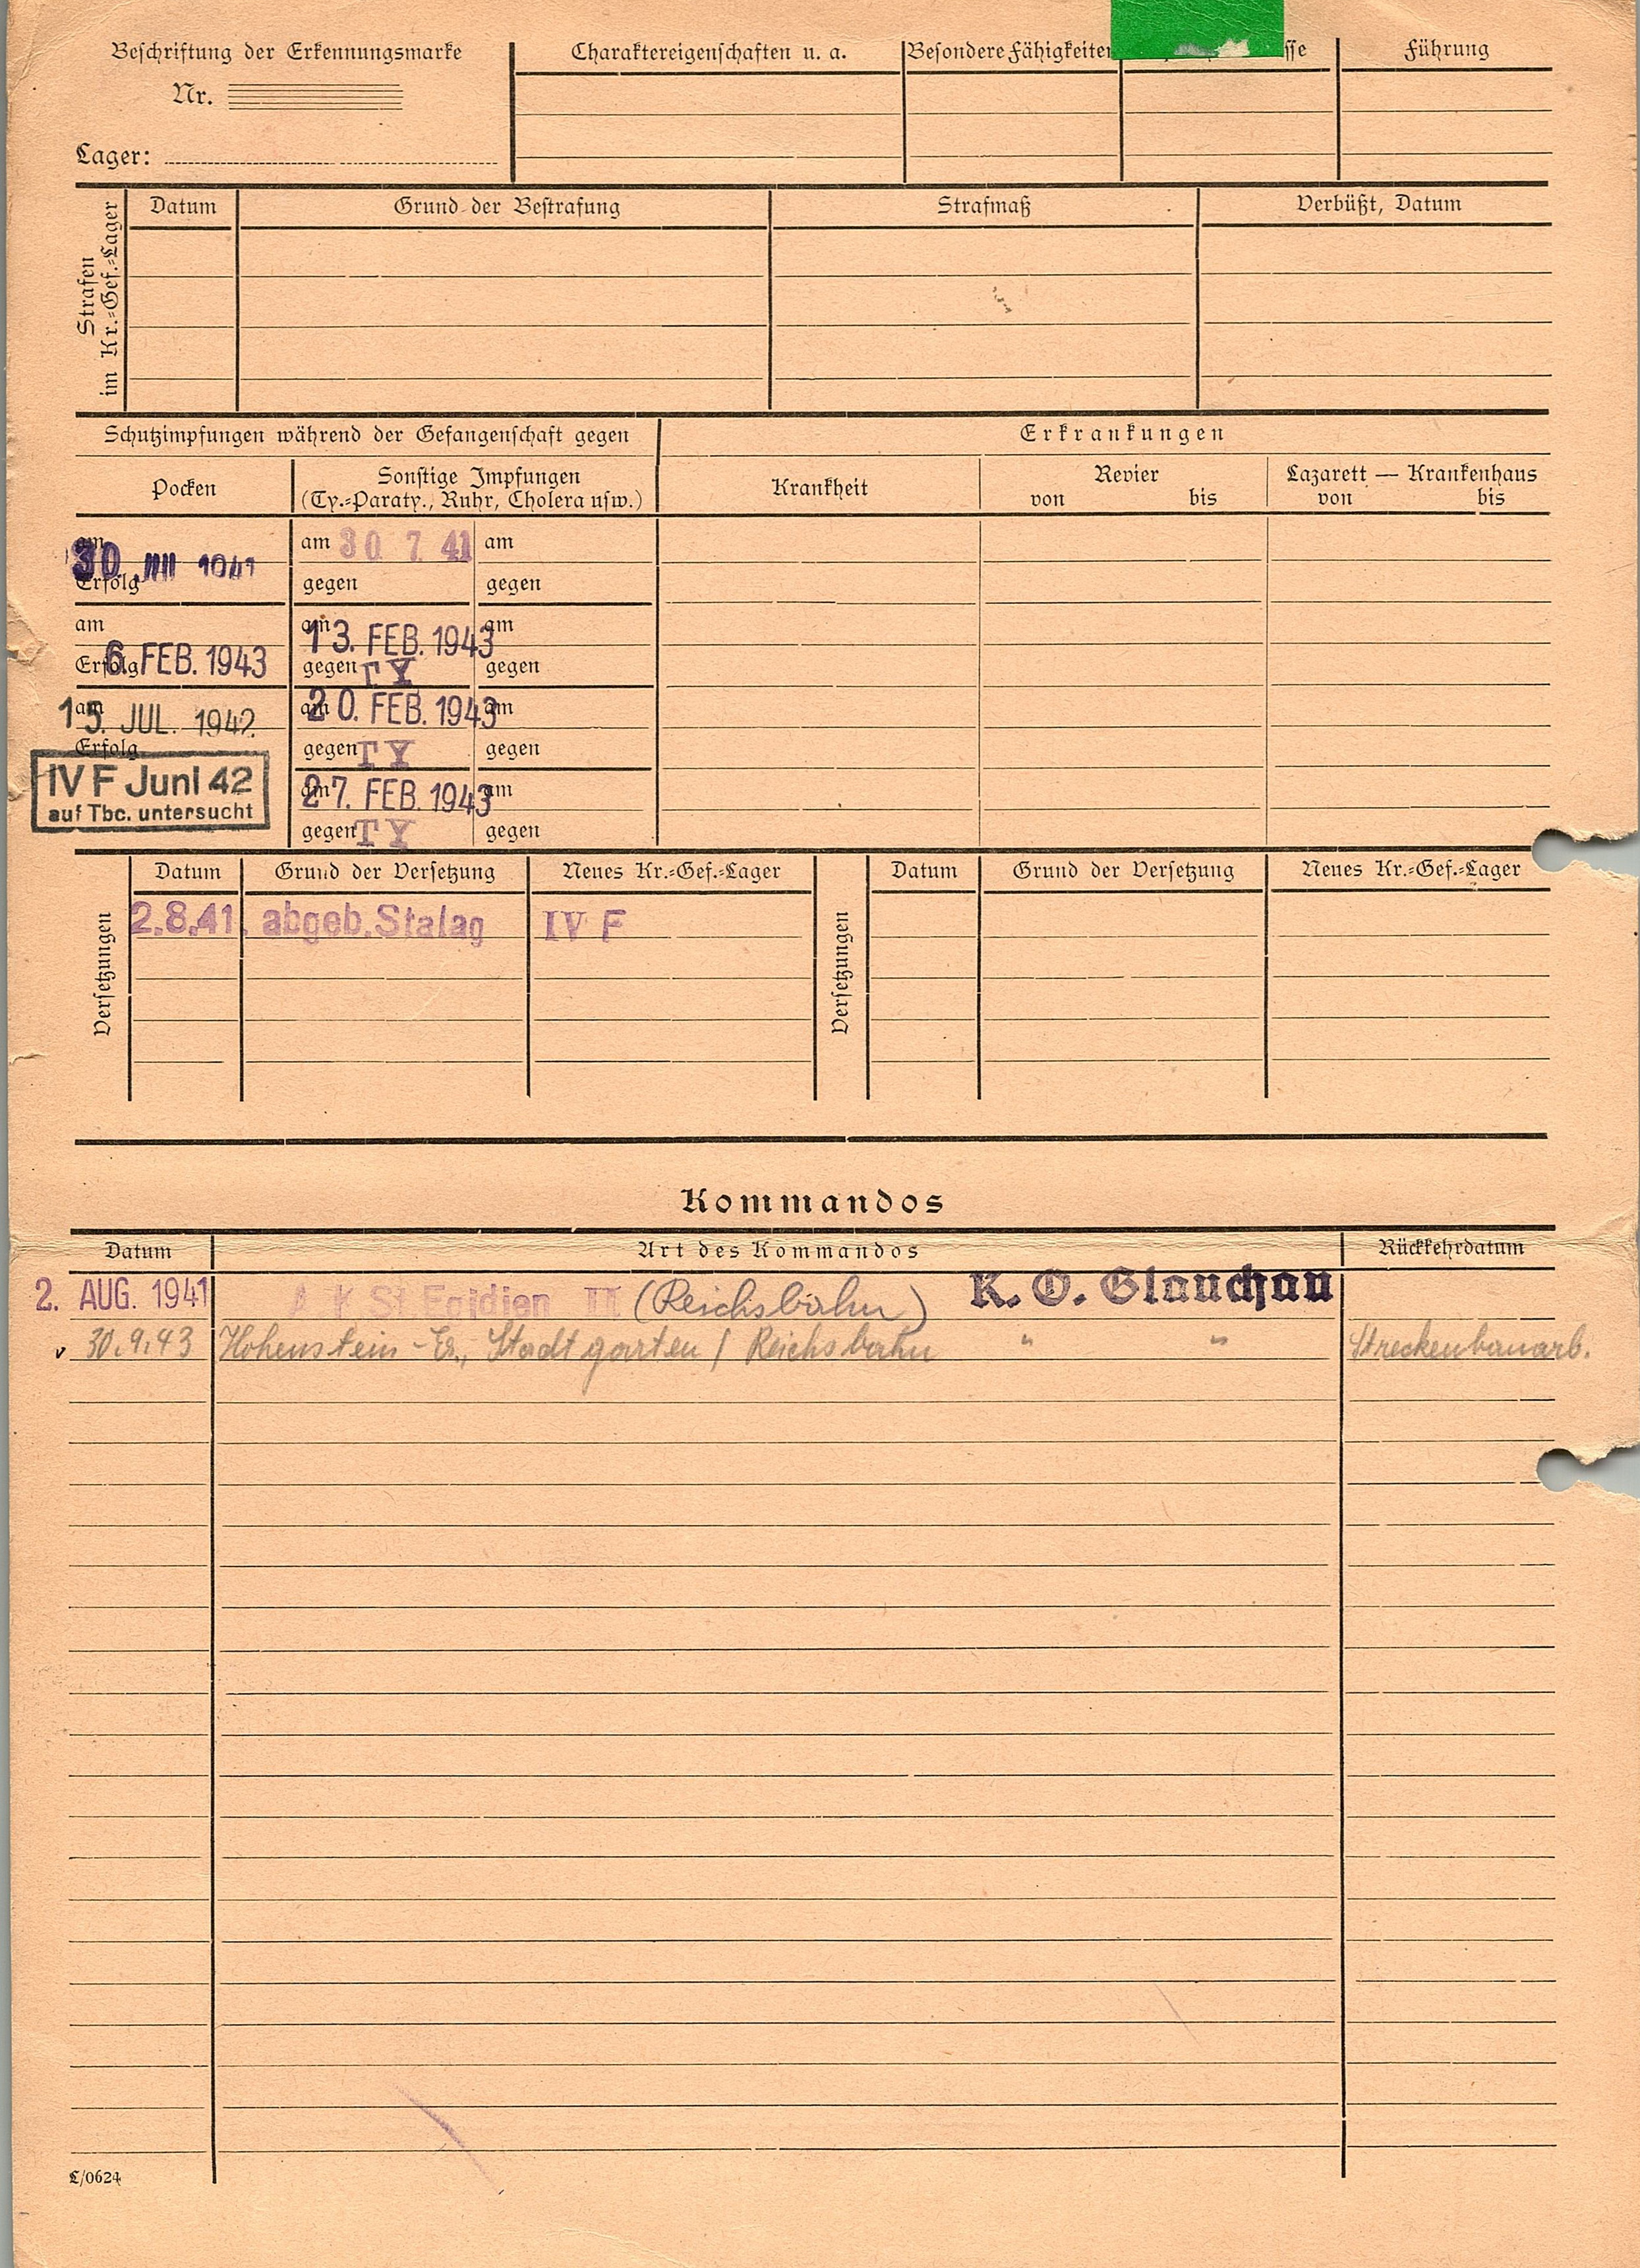 Beschriftung der Erkennungsmarke
Nr.
Lager:
Charaktereigenschaften u. a.
Besondere Fähigkeiten
Führung
Strafen im Kr.=Gef.=Lager
Datum Grund der Bestrafung Strafmaß Verbüßt, Datum
Schutzimpfungen während der Gefangenschaft gegen
Erkrankungen
Pocken
Sonstige Impfungen
(Ty.=Paraty., Ruhr, Cholera usw.)
Krankheit
Revier
von bis
Lazarett — Krankenhaus
von bis
am am 30 7 41 am
30 1941
Erfolg gegen gegen
am am 13. FEB. 1943 am
Erfolg 6. FEB. 1943 gegen TY gegen
am 15. JUL. 1942 am 20. FEB. 1943 am
Erfolg gegen TY gegen
IV F Juni 42
auf Tbc. untersucht
am 27. FEB. 1943 am
gegen TY gegen
Versetzungen
Datum Grund der Versetzung Neues Kr.=Gef.=Lager
2.8.41. abgeb. Stalag IV F
Versetzungen
Datum Grund der Versetzung Neues Kr.=Gef.=Lager
Kommandos
Datum Art des Kommandos Rückkehrdatum
2. AUG. 1941 A K St Egidien II (Reichsbahn) K. O. Glauchau
v 30.9.43 Hohenstein-Er., Stadtgarten / Reichsbahn " " Streckenbauarb.
L/0624